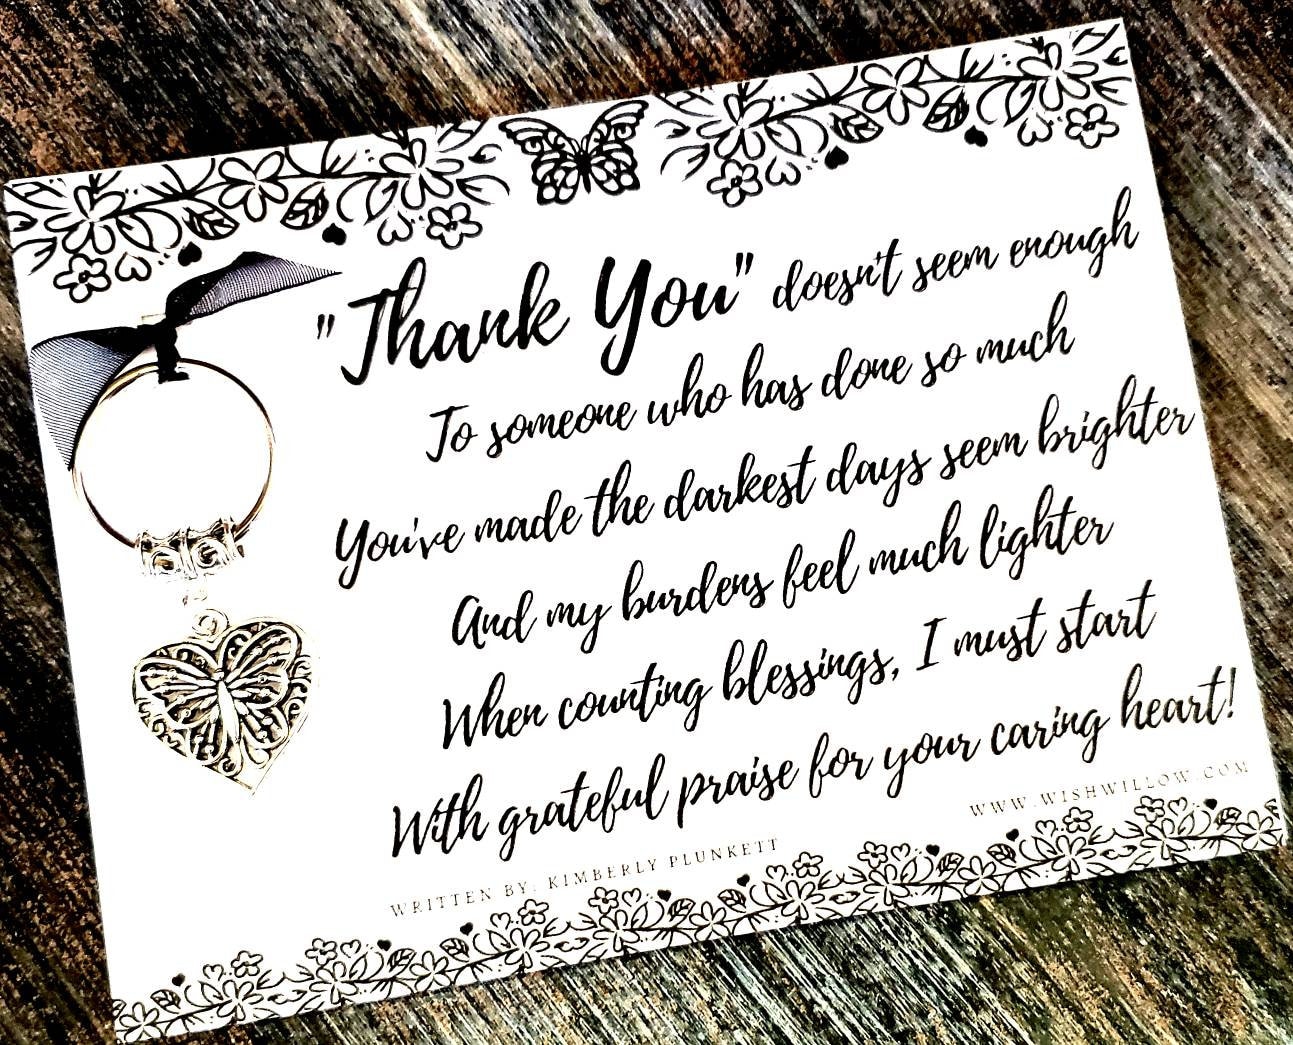 "Thank You" doesn't seem enough
To someone who has done so much
You've made the darkest days seem brighter
And my burdens feel much lighter
When counting blessings, I must start
With grateful praise for your caring heart!
WWW.WISHWILLOW.COM
WRITTEN BY: KIMBERLY PLUNKETT